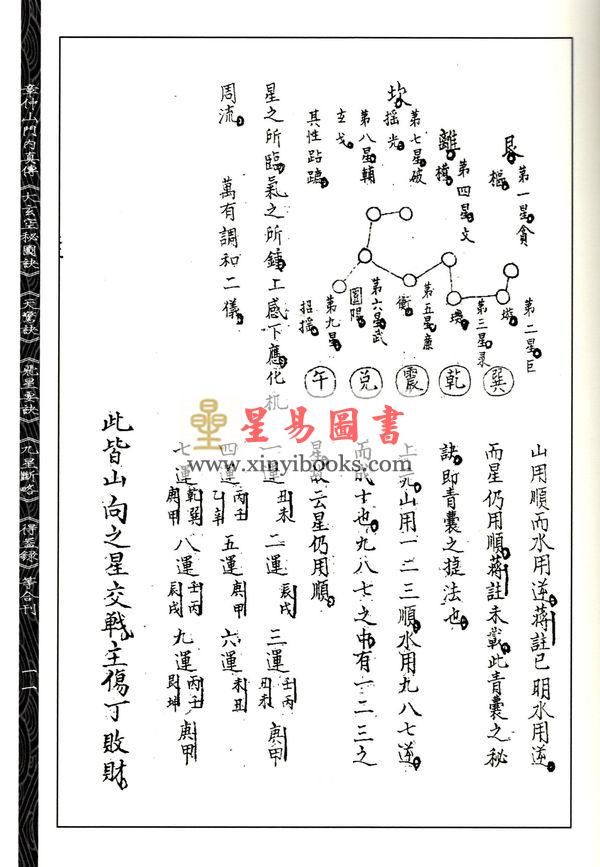 艮 樞 第一星貪
第二星巨 璇
第三星录 璣
離 權 第四星文
第五星廉 衡
坎 搖光 第七星破
第六星武 闓陽
玄戈 第八星輔
第九星 招搖
其性跕蹠
巽
乾
震
兌
午
星之所臨氣之所鍾上感下應化机
周流 萬有調和二儀
山用順而水用逆蔣註已明水用逆
而星仍用順蔣註未載此青囊之秘
訣即青囊之捷法也
上元山用一二三順水用九八七逆
而成士也九八七之中有一二三之
星故云星仍用順
一運 丑未 二運 辰戌 三運 壬丙 丑未 庚甲
四運 丙壬 乙辛 五運 庚甲 六運 未丑
七運 乾巽 庚甲 八運 壬丙 辰戌 九運 丙壬 艮坤 庚甲
此皆山向之星交戰主傷丁敗財
星易圖書
www.xinyibooks.com
章仲山門內真傳《大玄空秘圖訣》《天驚訣》《飛星要訣》《九星斷略》《得益錄》等合刊
一一